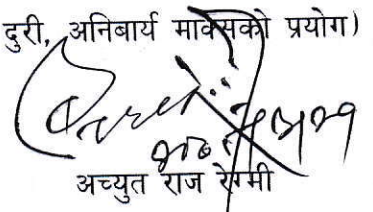 दुरी, अनिबार्य माक्सको प्रयोग)
अच्युत राज रेग्मी